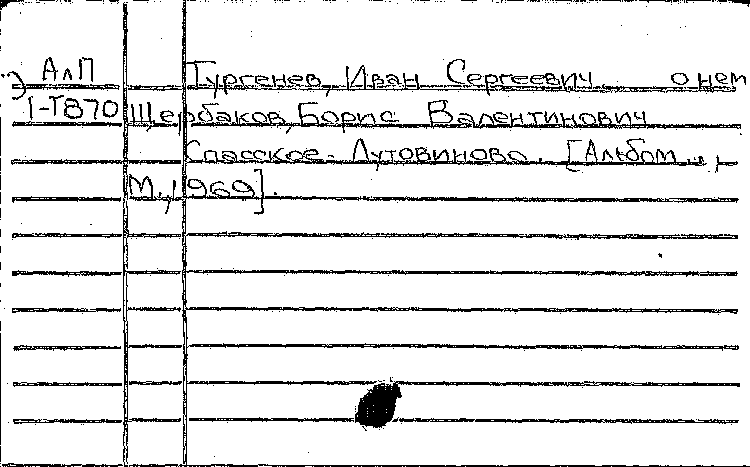 АлП Тургенев, Иван Сергеевич о нем
1-Т870 Щербаков, Борис Валентинович
Спасское-Лутовиново. [Альбом.,
М., 1969].